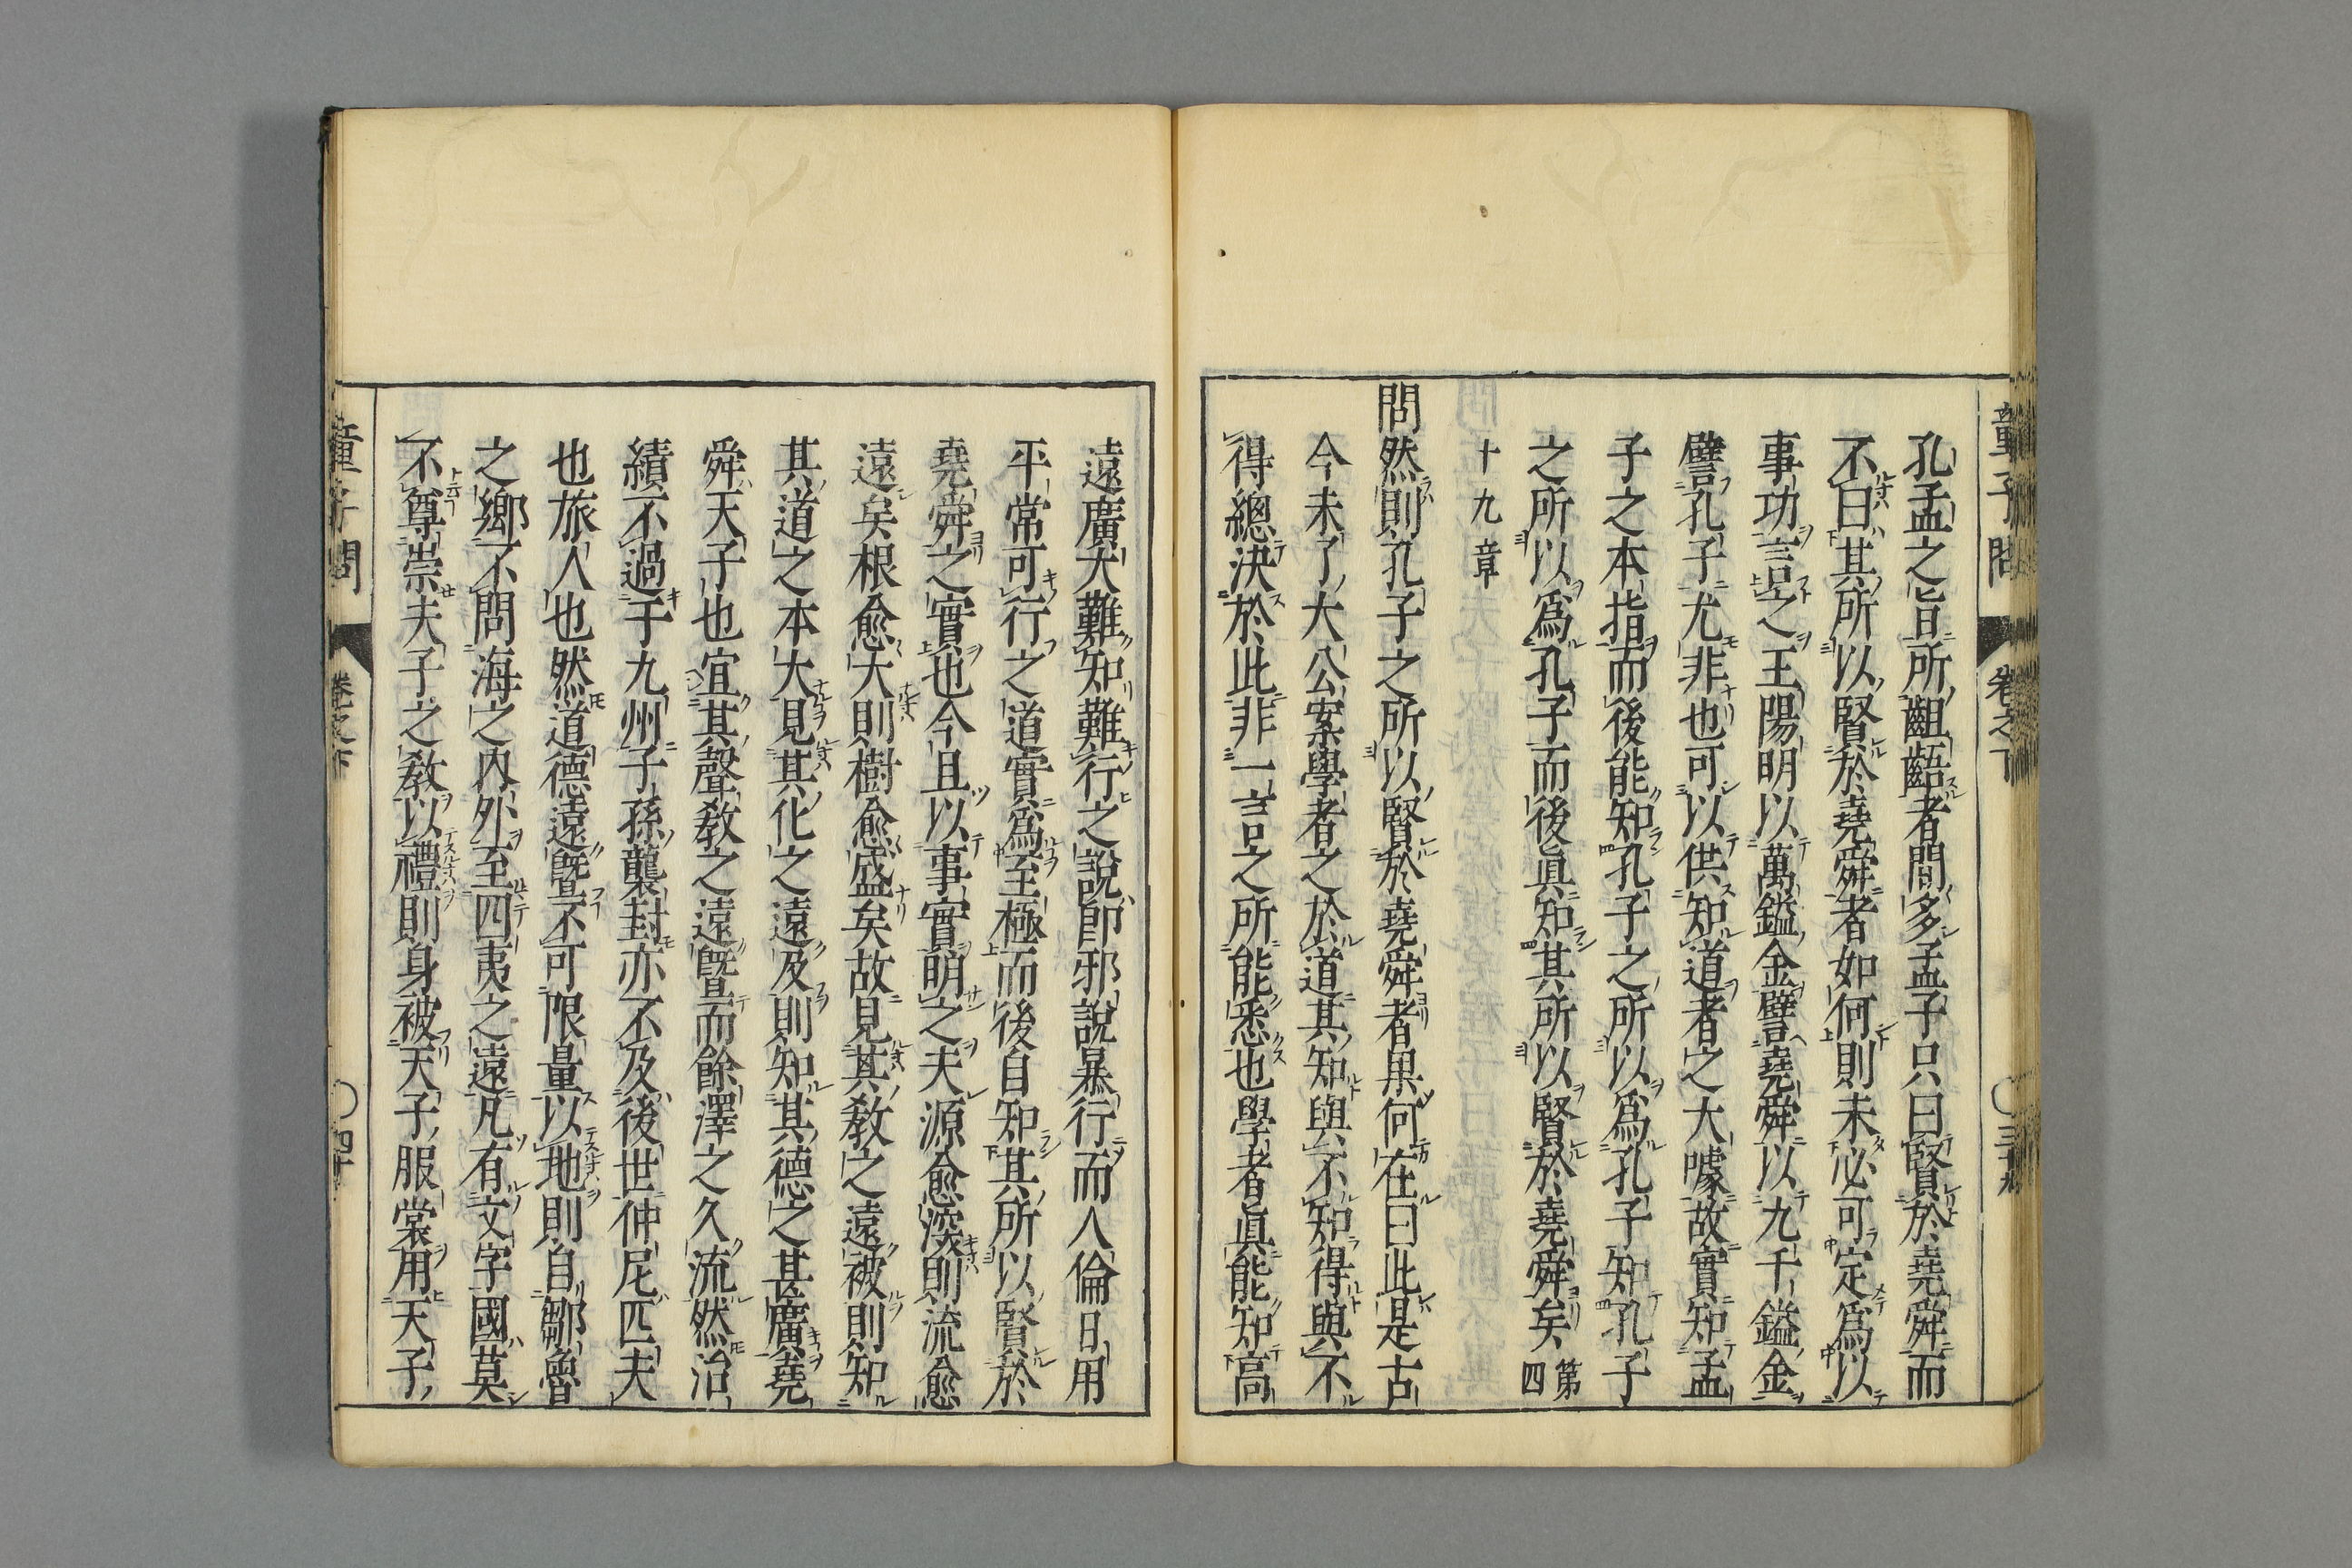 童子問 卷之下 〇三十九
孔孟之旨所齟齬者間多孟子只曰賢於堯舜而
不曰其所以賢於堯舜者如何則未必可定爲以
事功言之王陽明以萬鎰金譬堯舜以九千鎰金
譬孔子尤非也可以供知道者之大噱故實知孟
子之本指而後能知孔子之所以爲孔子知孔子
之所以爲孔子而後眞知其所以賢於堯舜矣 第四
十九章
問然則孔子之所以賢於堯舜者果何在曰此是古
今未了大公案學者之於道其知與不知得與不
得總決於此非一言之所能悉也學者眞能知高
遠廣大難知難行之說卽邪說暴行而人倫日用
平常可行之道實爲至極而後自知其所以賢於
堯舜之實也今且以事實明之夫源愈深則流愈
遠矣根愈大則樹愈盛矣故見其敎之遠被則知
其道之本大見其化之遠及則知其德之甚廣堯
舜天子也宜其聲敎之遠曁而餘澤之久流然治
績不過于九州子孫襲封亦不及後世仲尼匹夫
也旅人也然道德遠曁不可限量以地則自鄒魯
之鄕不問海之內外至四夷之遠凡有文字國莫
不尊崇夫子之敎以禮則身被天子服裳用天子
童子問 卷之下 〇四十